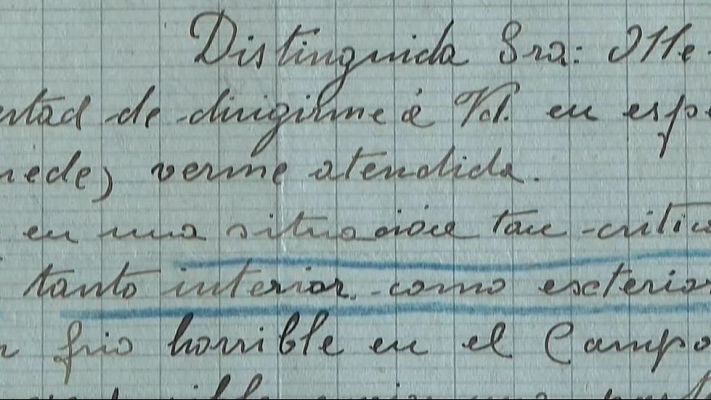 Distinguida Sra: Me
de dirigirme á Vd. en
verme atendida.
en una situación tan critica
tanto interior como exterior
frio horrible en el Campo